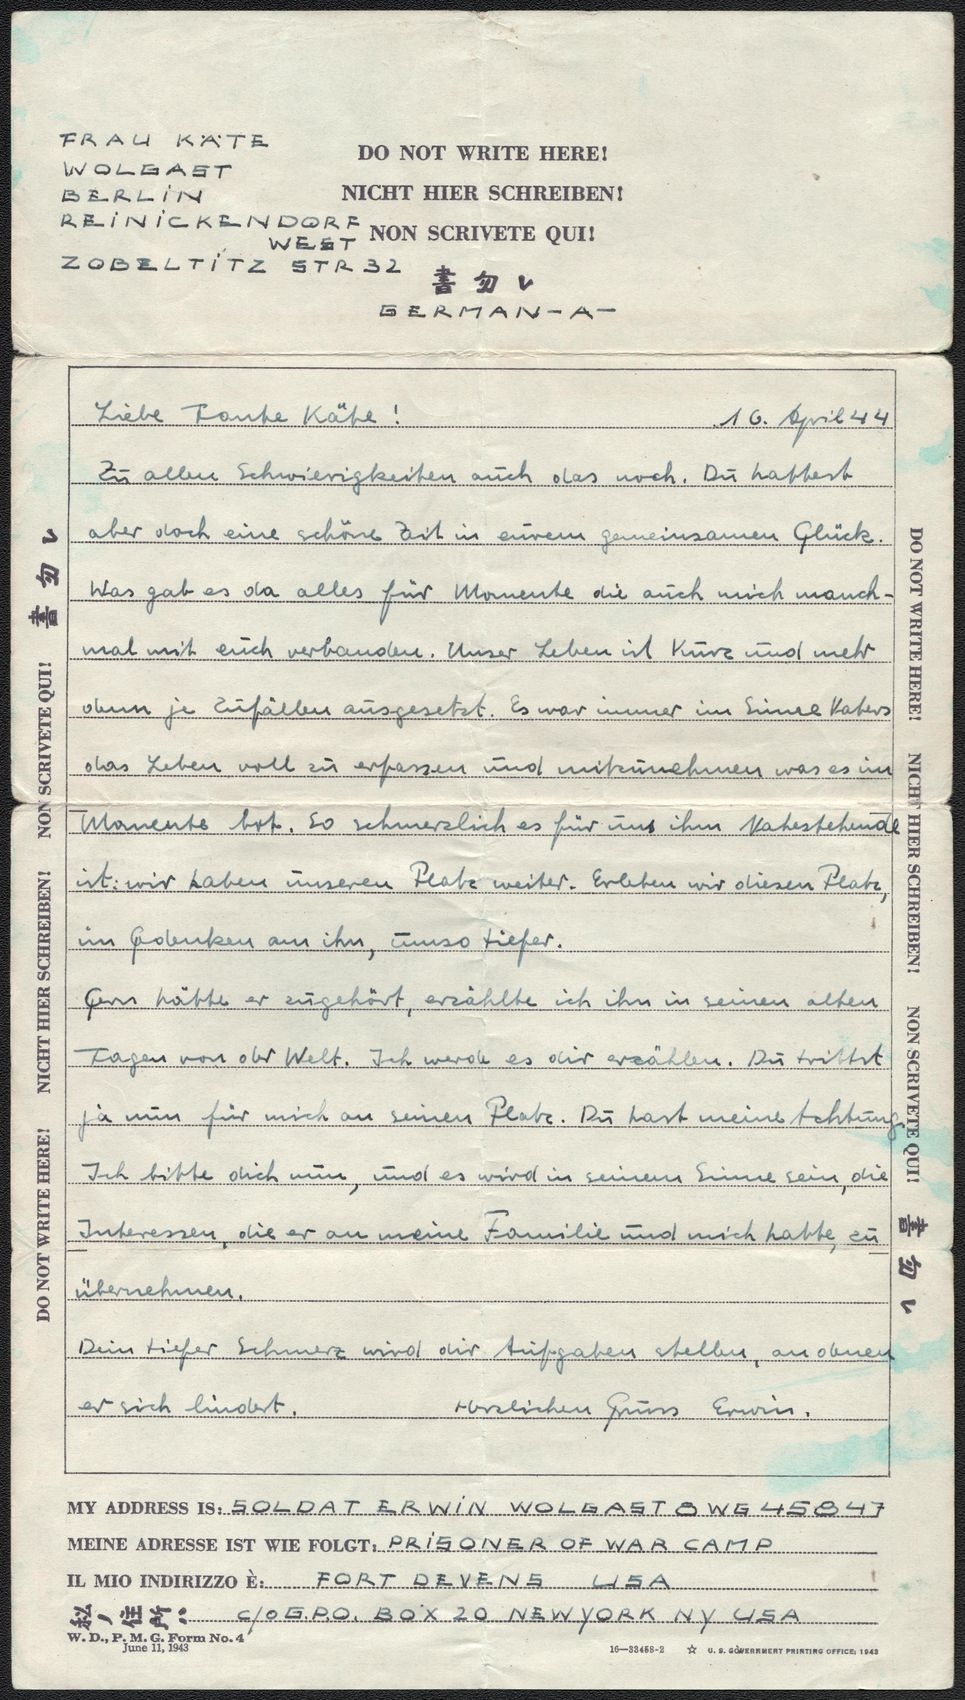 FRAU KÄTE
WOLGAST
BERLIN
REINICKENDORF
WEST
ZOBELTITZ STR 32
DO NOT WRITE HERE!
NICHT HIER SCHREIBEN!
NON SCRIVETE QUI!
書勿レ
GERMAN-A-
Liebe Tante Käte! 16. April 44
Zu allen Schwierigkeiten auch das noch. Du hattest
aber doch eine schöne Zeit in eurem gemeinsamen Glück.
Was gab es da alles für Momente die auch mich manch-
mal mit euch verbanden. Unser Leben ist Kurz und mehr
denn je Zufällen ausgesetzt. Es war immer im Sinne Vaters
das Leben voll zu erfassen und mitzunehmen was es im
Momente bot. So schmerzlich es für uns ihm Nahestehende
ist: wir haben unseren Platz weiter. Erleben wir diesen Platz,
im Gedenken an ihn, umso tiefer.
Gern hätte er zugehört, erzählte ich ihm in seinen alten
Tagen von der Welt. Ich werde es dir erzählen. Du trittst
ja nun für mich an seinen Platz. Du hast meine Achtung
Ich bitte dich nun, und es wird in seinem Sinne sein, die
Interessen, die er an meine Familie und mich hatte, zu
übernehmen.
Dein tiefer Schmerz wird dir Aufgaben stellen, an denen
er sich lindert. Herzlichen Gruss Erwin.
DO NOT WRITE HERE! NICHT HIER SCHREIBEN! NON SCRIVETE QUI! 書勿レ
DO NOT WRITE HERE! NICHT HIER SCHREIBEN! NON SCRIVETE QUI! 書勿レ
MY ADDRESS IS: SOLDAT ERWIN WOLGAST 8WG 45847
MEINE ADRESSE IST WIE FOLGT: PRISONER OF WAR CAMP
IL MIO INDIRIZZO È: FORT DEVENS USA
私ノ住所ハ c/o G.P.O. BOX 20 NEWYORK NY USA
W. D., P. M. G. Form No. 4
June 11, 1943
16—33458-2 ☆ U. S. GOVERNMENT PRINTING OFFICE: 1943